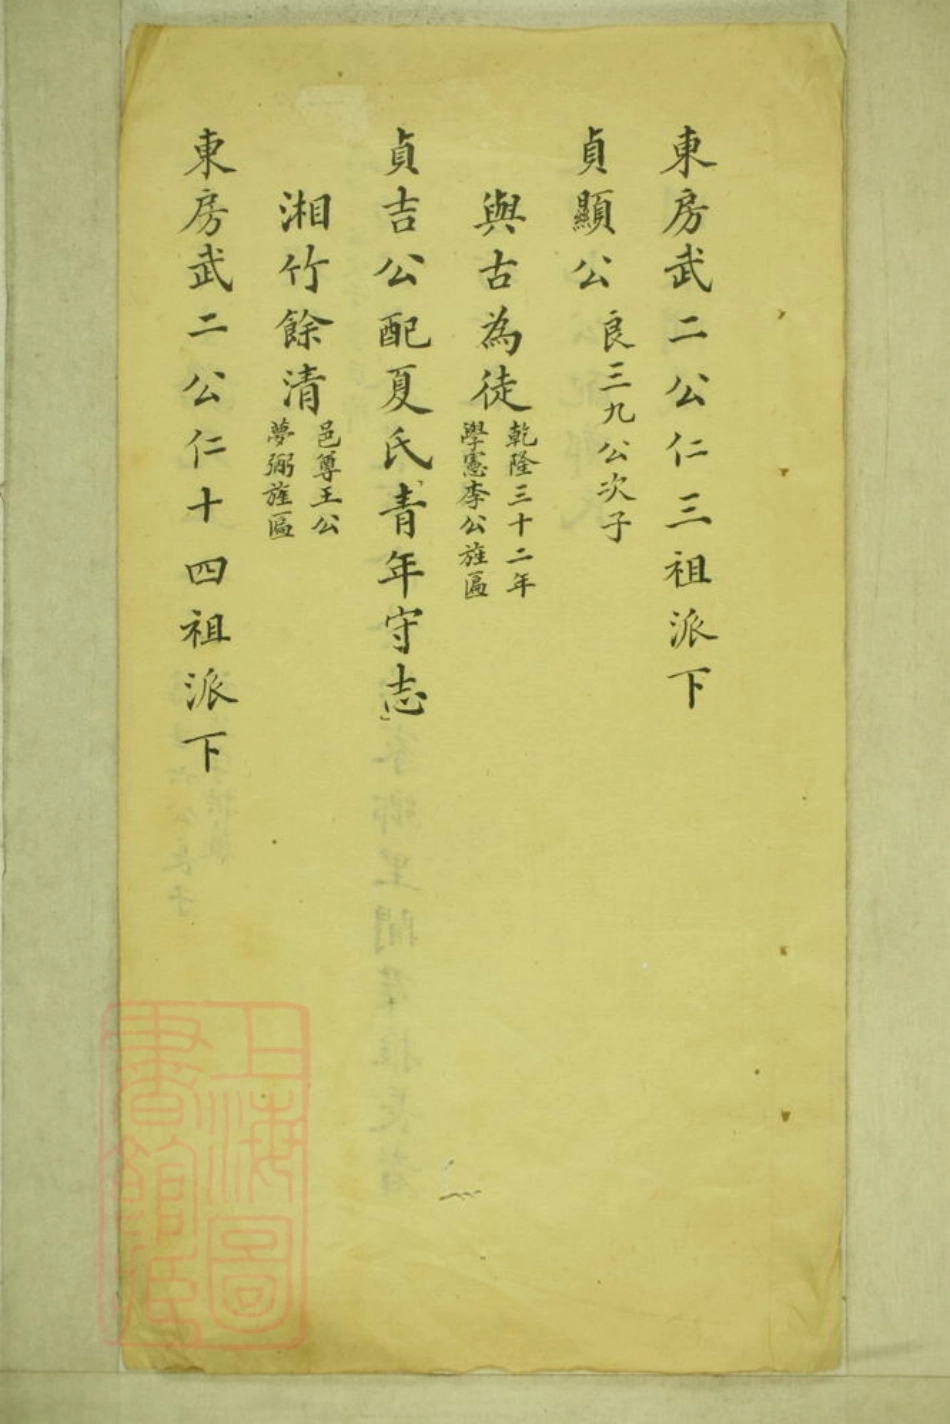 東房武二公仁三祖派下
貞顯公良三九公次子
與古為徒乾隆三十二年
學憲李公旌匾
貞吉公配夏氏青年守志
湘竹餘清邑尊王公
夢弼旌匾
東房武二公仁十四祖派下
上海圖
書館藏